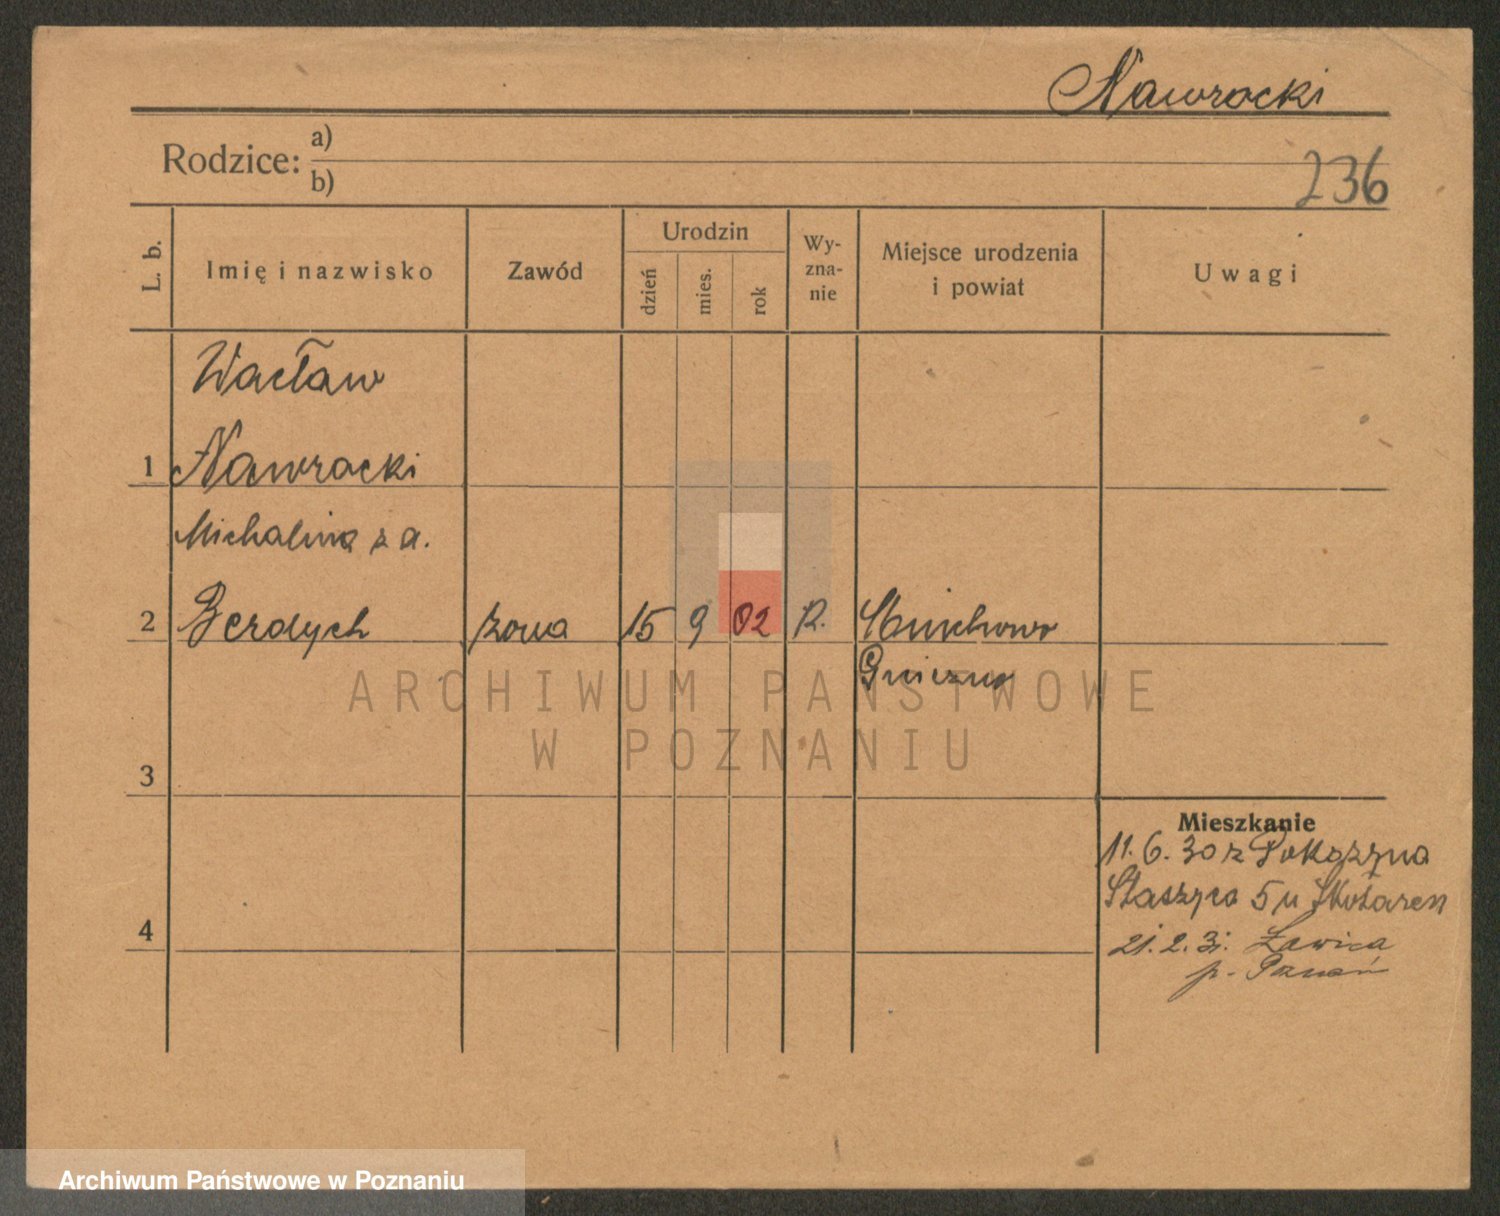 Nawrocki
Rodzice: a)
b)
236
L. b.
Imię i nazwisko
Zawód
Urodzin
dzień
mies.
rok
Wy-
zna-
nie
Miejsce urodzenia
i powiat
Uwagi
Wacław
1 Nawrocki
Michalina z d.
2 Berdych żona 15 9 02 R.
Gniezno
3
4
Mieszkanie
11.6.30 z
Staszyca 5 u
21.2.31. Ławica
p. Poznań
ARCHIWUM PAŃSTWOWE
W POZNANIU
Archiwum Państwowe w Poznaniu